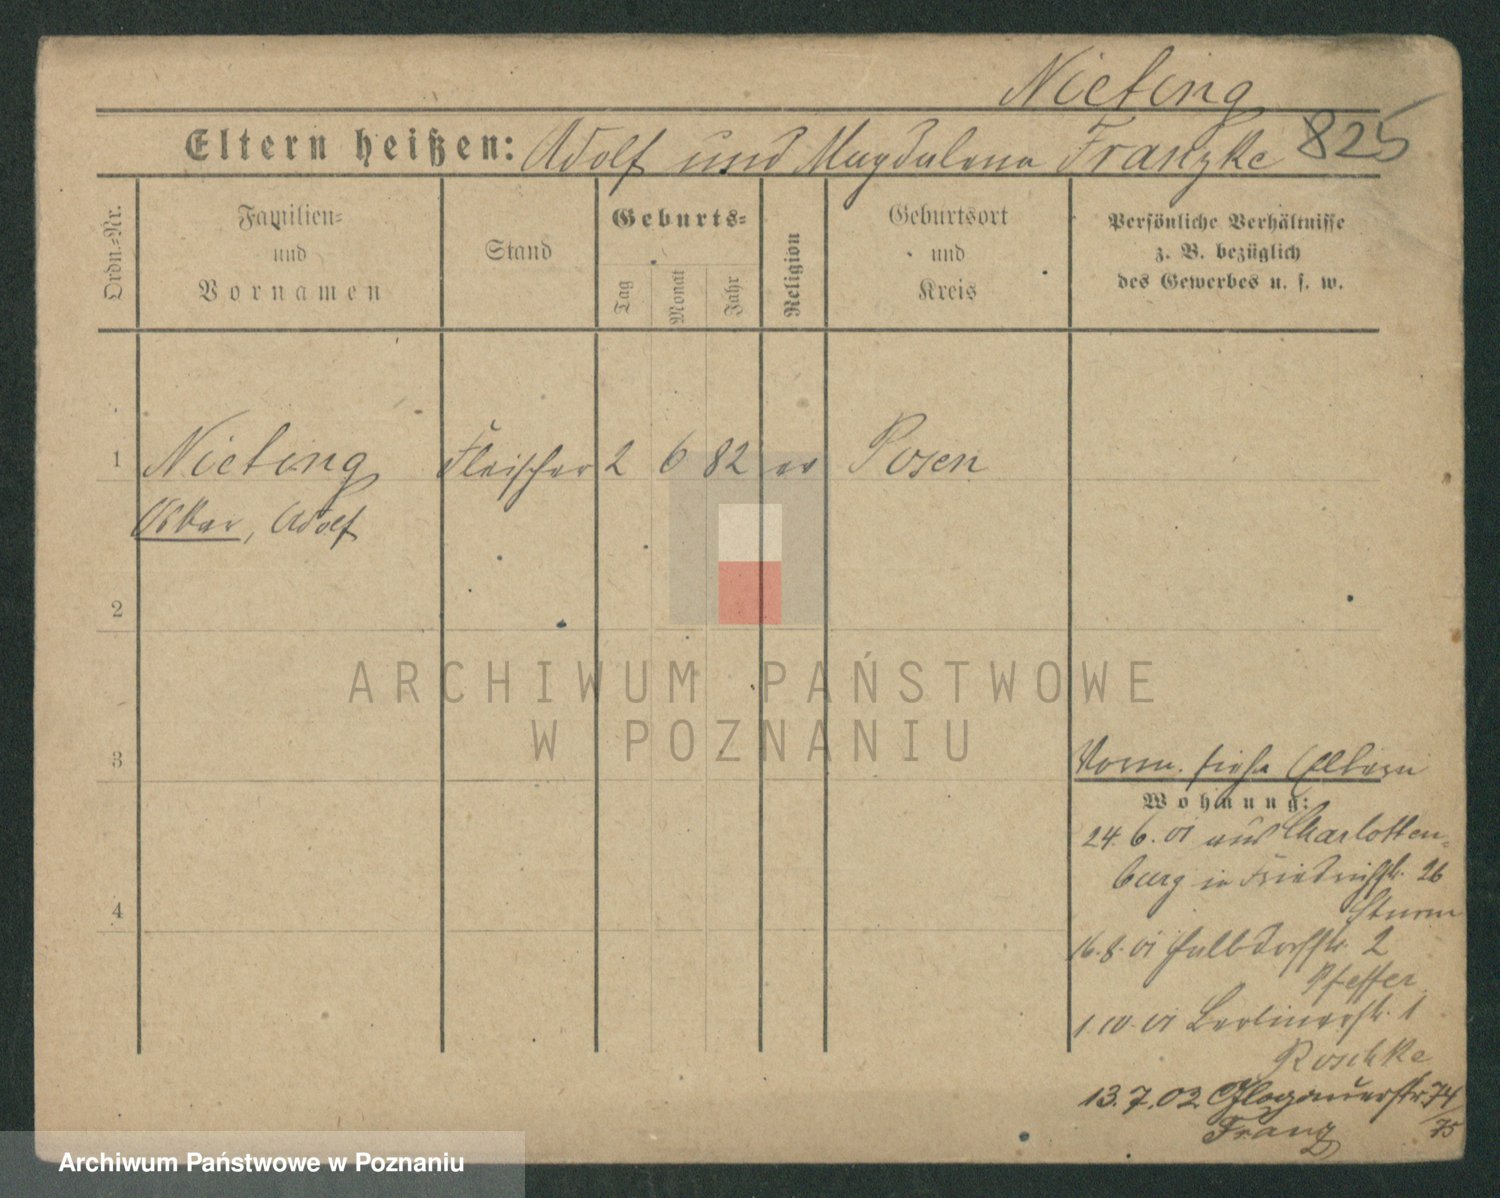 Nieting
825
Eltern heißen: Adolf und Magdalena Franzke
Ordn.-Nr.
Familien-
und
Vornamen
Stand
Geburts-
Tag
Monat
Jahr
Religion
Geburtsort
und
Kreis
Persönliche Verhältnisse
z. B. bezüglich
des Gewerbes u. s. w.
1 Nieting Fleischer 2 6 82 ev Posen
Oskar, Adolf
2
ARCHIWUM PAŃSTWOWE
W POZNANIU
3
Vorm. siehe Eltern
Wohnung:
24.6.01 aus Charlotten-
burg in Friedrichstr. 26
Sturm
4
16.8.01 Halbdorfstr. 2
Pfeffer
1.10.01 Berlinerstr. 1
Roschke
13.7.02 Glogauerstr. 74/75
Franz
Archiwum Państwowe w Poznaniu